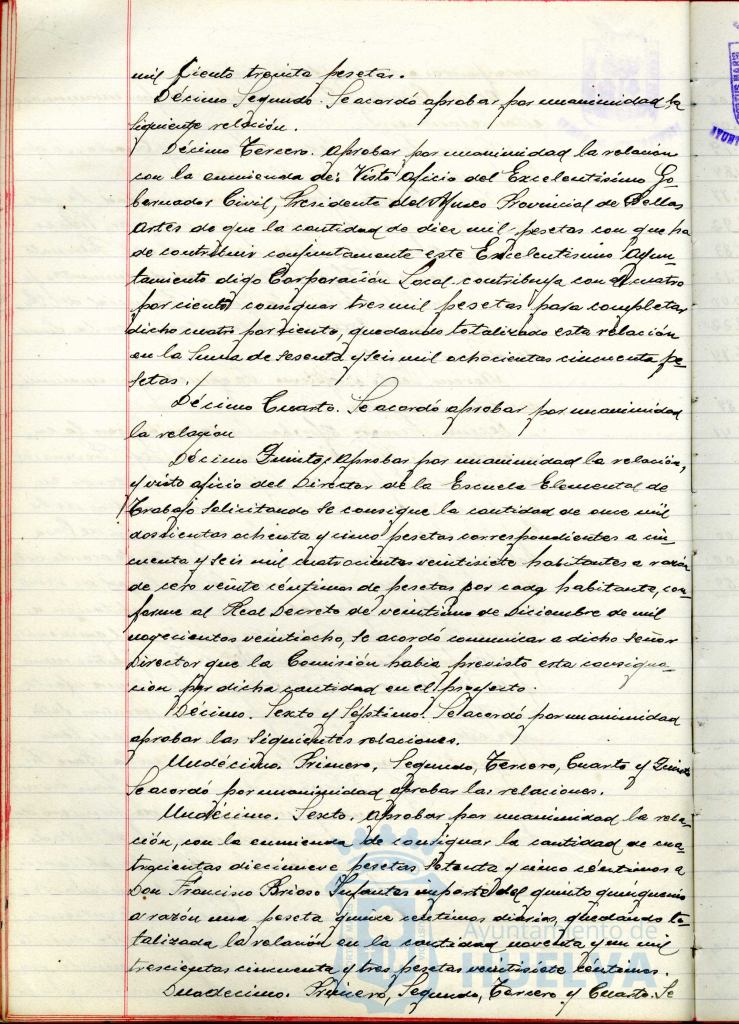 mil ciento treinta pesetas.
Décimo Segundo. Se acordó aprobar por unanimidad la
siguiente relación.
Décimo Tercero. Aprobar por unanimidad la relación
con la enmienda de: Visto oficio del Excelentísimo Go-
bernador Civil, Presidente del Museo Provincial de Bellas
Artes de que la cantidad de diez mil pesetas con que ha
de contribuir conjuntamente este Excelentísimo Ayun-
tamiento digo Corporación Local contribuya con el cuatro
por ciento consignar tres mil pesetas para completar
dicho cuatro por siento, quedando totalizado esta relación
en la suma de sesenta y seis mil ochocientas cincuenta pe-
setas.
Décimo Cuarto. Se acordó aprobar por unanimidad
la relación
Décimo Quinto. Aprobar por unanimidad la relación,
y visto oficio del Director de la Escuela Elemental de
Trabajo solicitando se consigne la cantidad de once mil
doscientas ochenta y cinco pesetas correspondientes a cin-
cuenta y seis mil cuatrocientos veintisiete habitantes a razón
de cero veinte céntimos de pesetas por cada habitante, con-
forme al Real Decreto de veintiuno de Diciembre de mil
novecientos veintiocho, se acordó comunicar a dicho Señor
Director que la Comisión había previsto esta consigna-
ción por dicha cantidad en el proyecto.
Décimo. Sexto y Séptimo. Se acordó por unanimidad
aprobar las siguientes relaciones.
Undécimo. Primero, Segundo, Tercero, Cuarto y Quinto
Se acordó por unanimidad aprobar las relaciones.
Undécimo. Sexto. Aprobar por unanimidad la rela-
ción, con la enmienda de consignar la cantidad de cua-
trocientas diecinueve pesetas setenta y cinco céntimos a
Don Francisco Brioso Infantes importe del quinto quinquenio
a razón una peseta quince céntimos diarios, quedando to-
talizada la relación en la cantidad noventa y un mil
trescientas cincuenta y tres pesetas veintisiete céntimos.
Duodecimo. Primero, Segundo, Tercero y Cuarto. Se
Ayuntamiento de
HUELVA